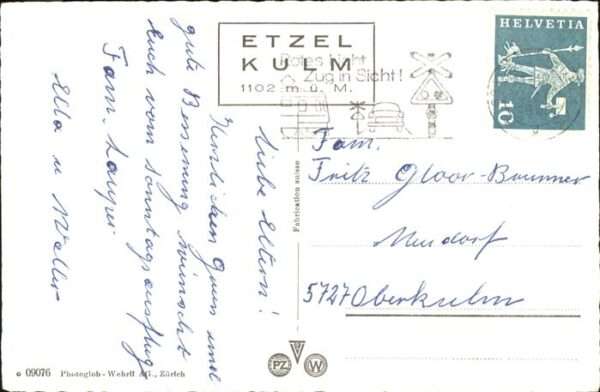 Liebe Eltern!
Herzlichen Gruss und
gute Besserung wünscht
Euch vom Sonntagsausflug
Fam.
Ella u Walter
ETZEL
KULM
1102 m ü. M.
Rotes Licht
Zug in Sicht!
HELVETIA
10
Fam.
Fritz Gloor-Brunner
Neudorf
5727 Oberkulm
Fabrication suisse
09076 Photoglob-Wehrli AG., Zürich
PZ
W